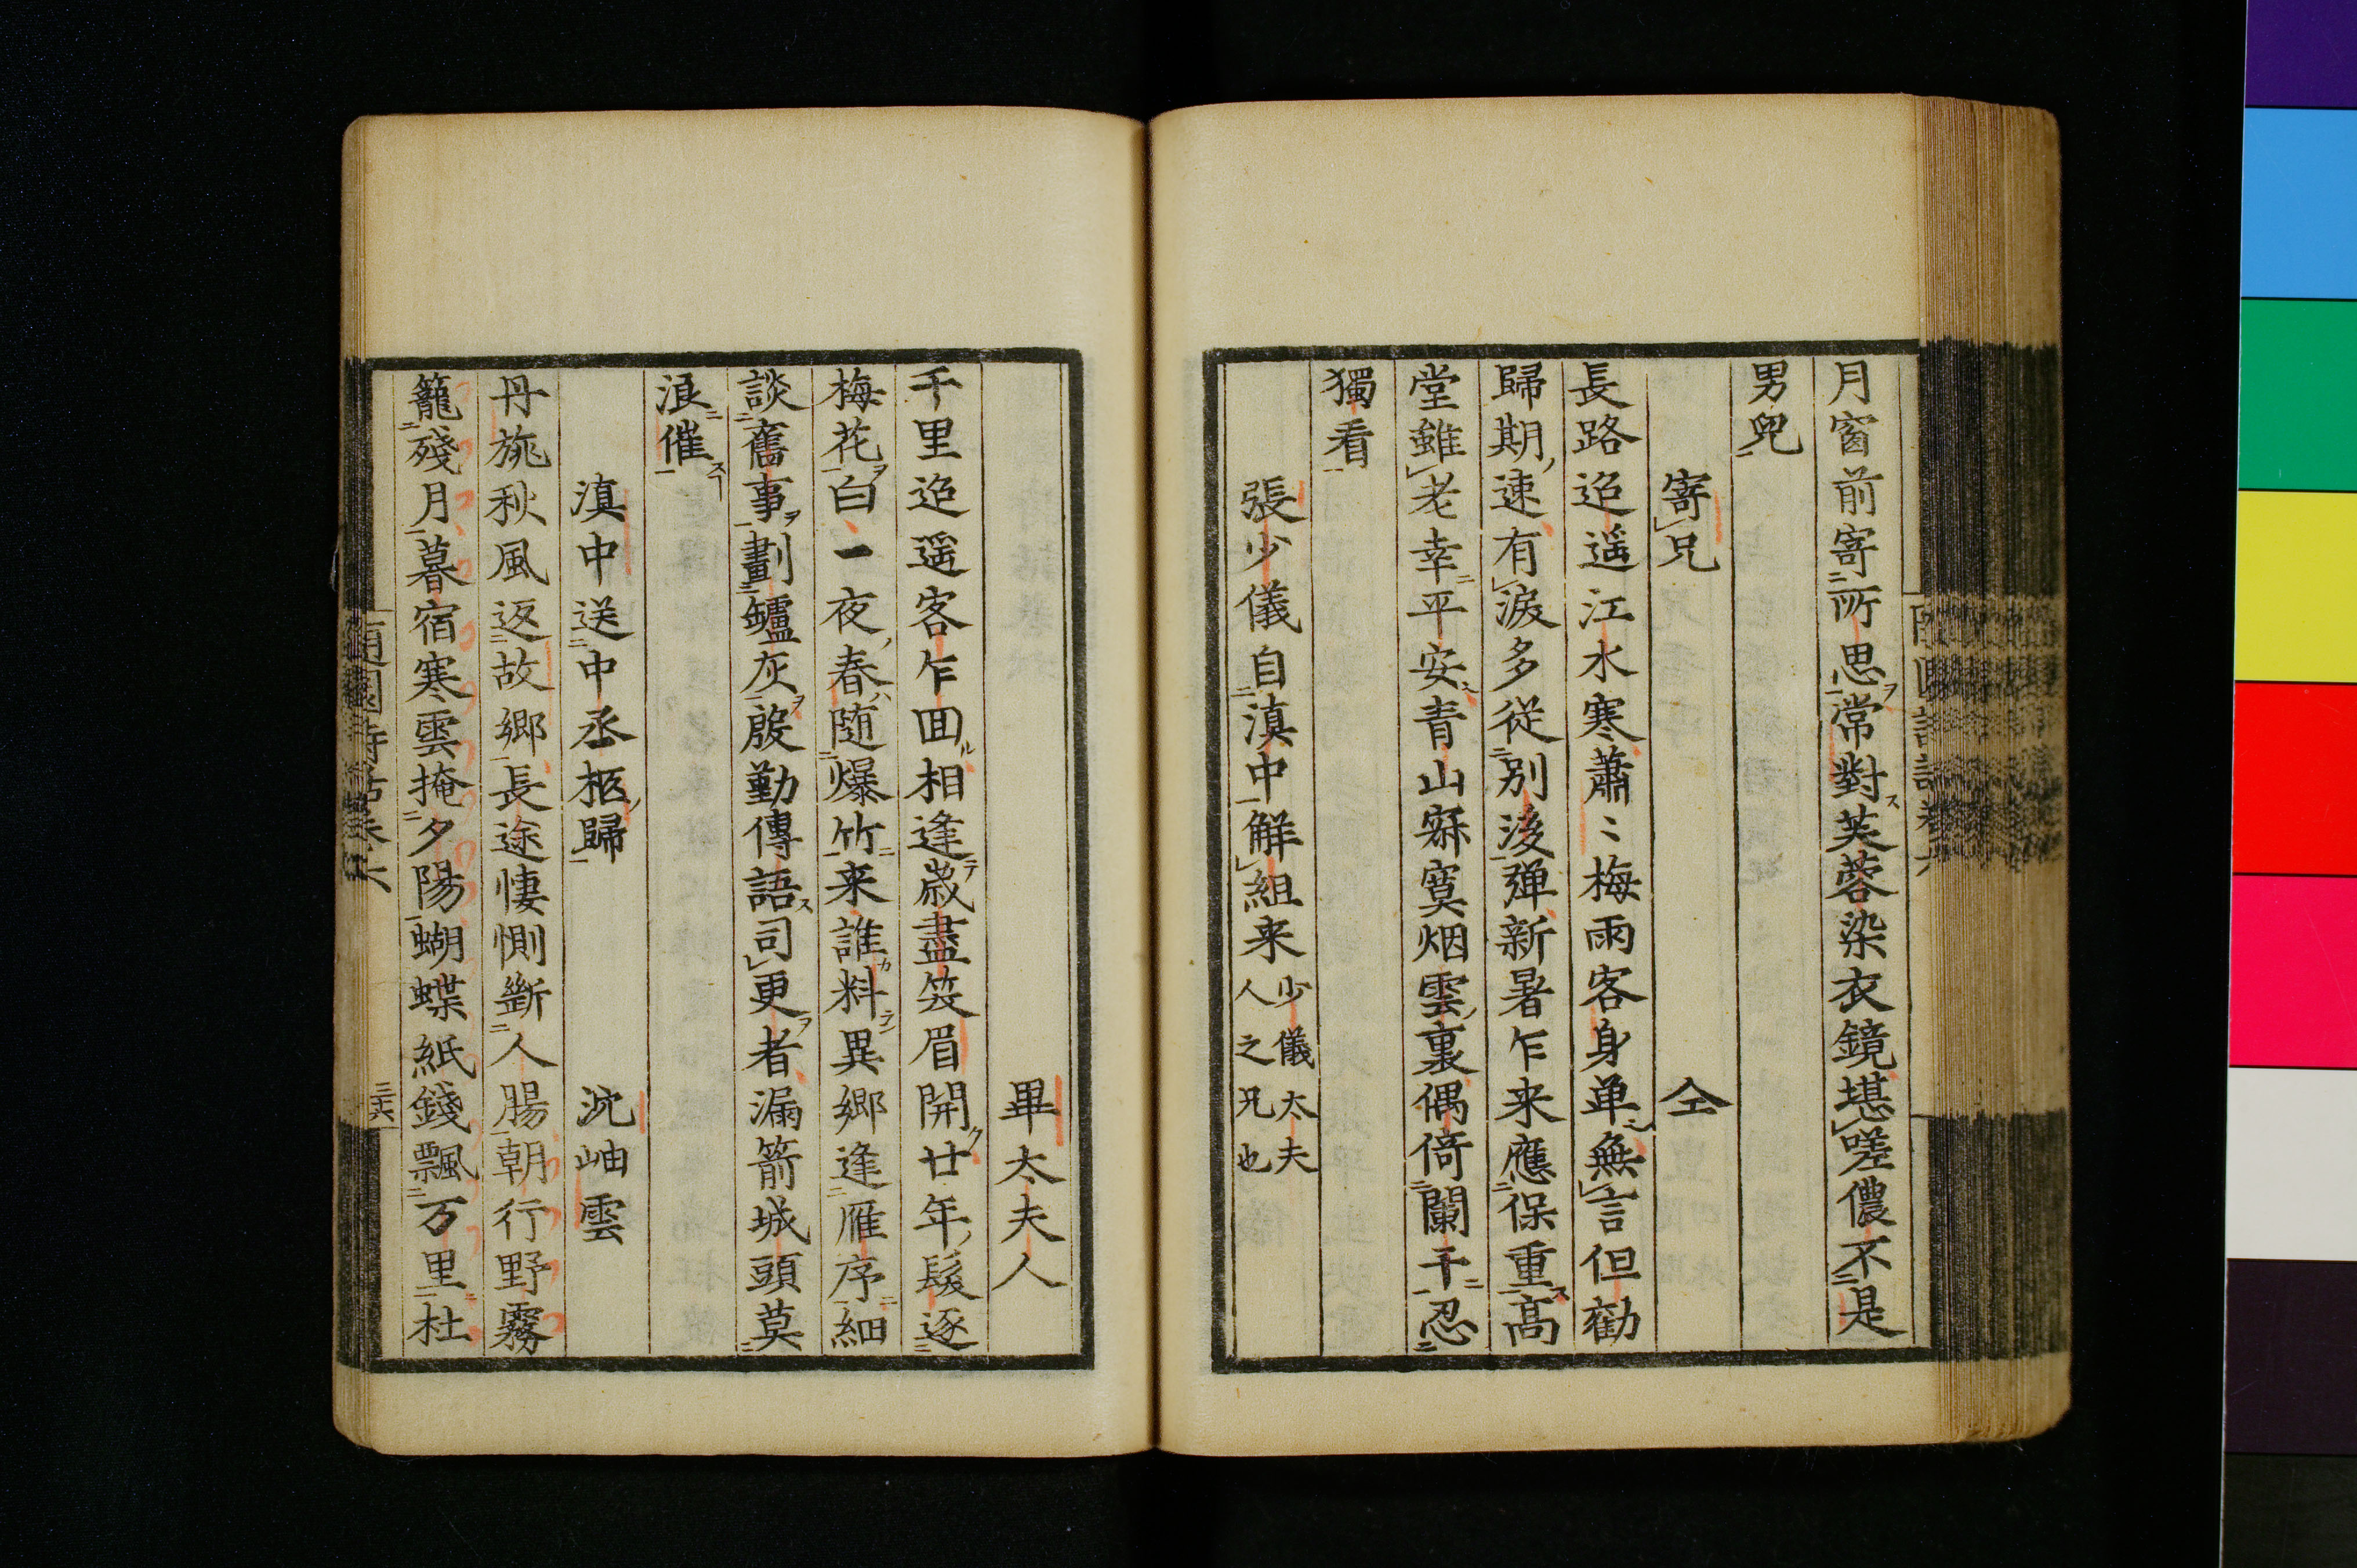 月窗前寄所思常對芙蓉染衣鏡堪嗟儂不是
男兒
寄兄　仝
長路迢遥江水寒蕭〻梅雨客身单無言但勸
歸期速有淚多従別後弾新暑乍来應保重高
堂雖老幸平安青山寂寞烟雲裏偶倚闌干忍
獨看
張少儀自滇中解組来少儀太夫人之兄也
畢太夫人
千里迢遥客乍回相逢歳盡笑眉開廿年髪逐
梅花白一夜春随爆竹来誰料異郷逢雁序細
談舊事劃鑪灰殷勤傳語司更者漏箭城頭莫
浪催
滇中送中丞柩歸　沈岫雲
丹旐秋風返故郷長途悽惻斷人腸朝行野霧
籠殘月暮宿寒雲掩夕陽蝴蝶紙錢飄万里杜
隨園詩話卷六
三六